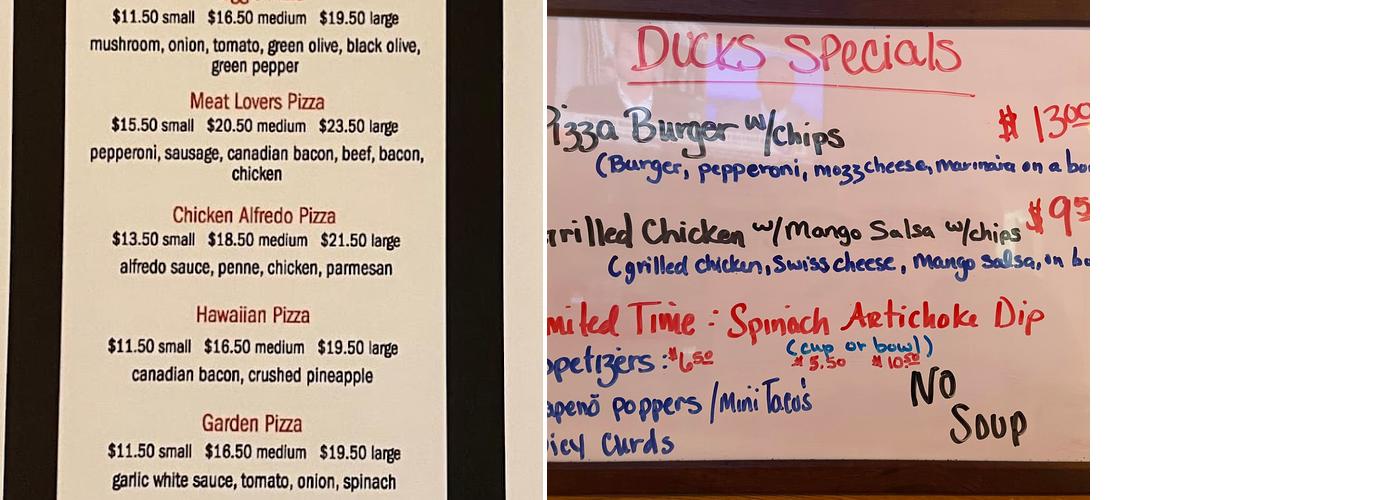 $11.50 small $16.50 medium $19.50 large
mushroom, onion, tomato, green olive, black olive,
green pepper
Meat Lovers Pizza
$15.50 small $20.50 medium $23.50 large
pepperoni, sausage, canadian bacon, beef, bacon,
chicken
Chicken Alfredo Pizza
$13.50 small $18.50 medium $21.50 large
alfredo sauce, penne, chicken, parmesan
Hawaiian Pizza
$11.50 small $16.50 medium $19.50 large
canadian bacon, crushed pineapple
Garden Pizza
$11.50 small $16.50 medium $19.50 large
garlic white sauce, tomato, onion, spinach
Ducks Specials
Pizza Burger w/chips $1300
(Burger, pepperoni, mozzcheese, marinaia on a
rilled Chicken w/Mango Salsa w/chips $95
(grilled chicken, Swiss cheese, Mango salsa, on
mited Time: Spinach Artichoke Dip
(cup or bowl)
ppetizers: $650 $5.50 $10.50
apeno poppers/Mini Taco's
icy Curds
No
Soup